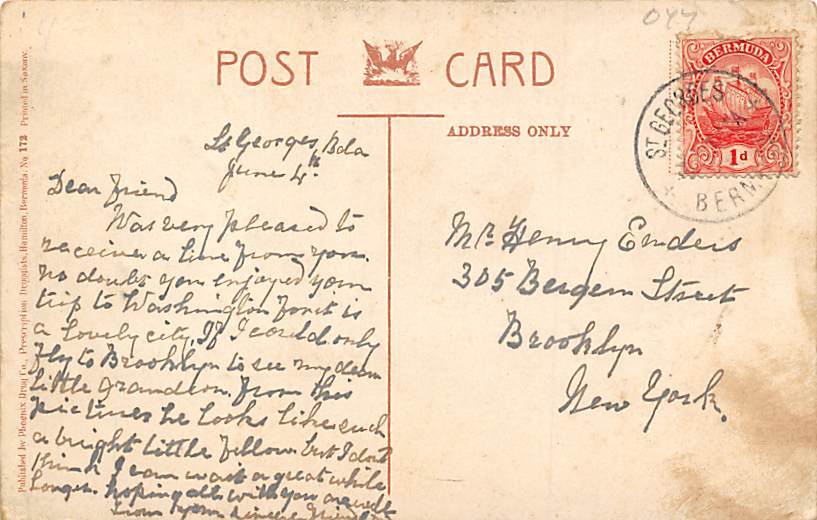 044
POST CARD
BERMUDA
1d
ST GEORGES
BERM
ADDRESS ONLY
Published by Phoenix Drug Co., Prescription Druggists, Hamilton, Bermuda. No 172 Printed in Saxony.
St Georges, Bda
June 4th
Dear Friend
Was very pleased to
receive a line from you.
no doubt you enjoyed your
trip to Washington for it is
a lovely city. If I could only
fly to Brooklyn to see my dear
little grandson. From this
pictures he looks like such
a bright little fellow but I dont
think I can wait a great while
longer. hoping all with you are well
from your sincere friend
Mr. Henry Enders
305 Bergen Street
Brooklyn
New York.